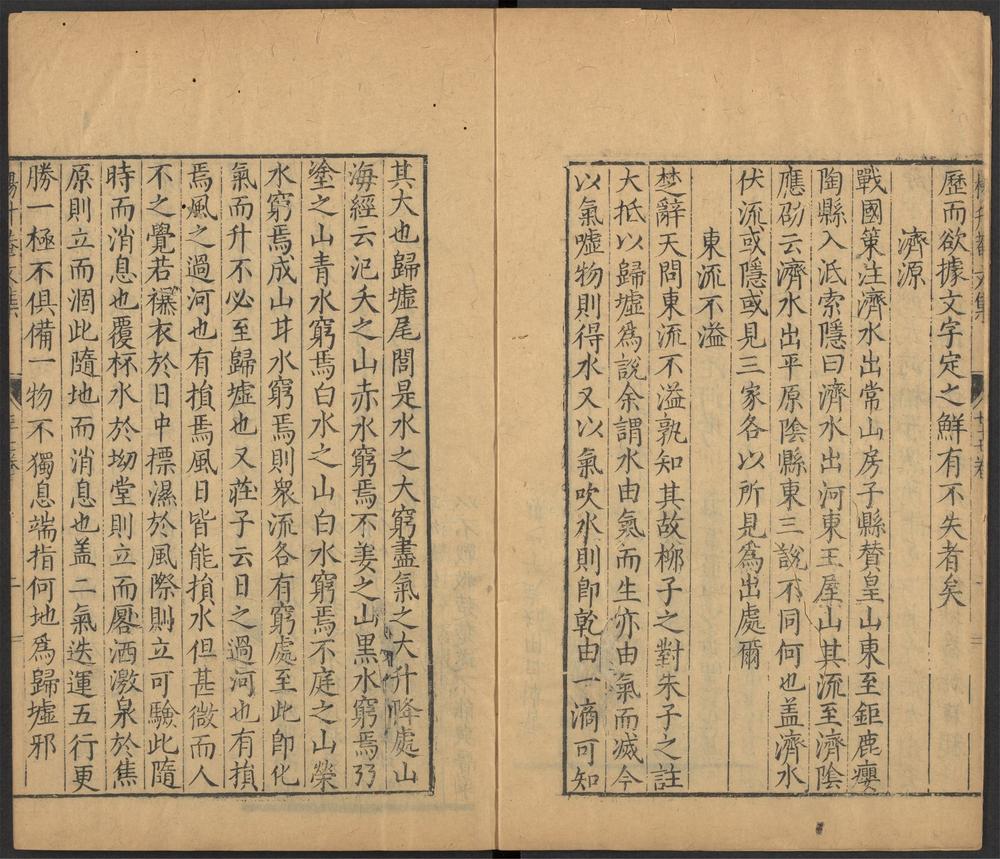 歷而欲據文字定之鮮有不失者矣
濟源
戰國策注濟水出常山房子縣賛皇山東至鉅鹿癭
陶縣入泜索隱曰濟水出河東王屋山其流至濟陰
應劭云濟水出平原陰縣東三說不同何也盖濟水
伏流或隱或見三家各以所見爲出處爾
東流不溢
楚辭天問東流不溢孰知其故柳子之對朱子之註
大抵以歸墟爲說余謂水由氣而生亦由氣而滅今
以氣噓物則得水又以氣吹水則卽乾由一滴可知
其大也歸墟尾閭是水之大窮盡氣之大升降處山
海經云汜夭之山赤水窮焉不姜之山黑水窮焉㱙
塗之山青水窮焉白水之山白水窮焉不庭之山榮
水窮焉成山甘水窮焉則衆流各有窮處至此卽化
氣而升不必至歸墟也又莊子云日之過河也有損
焉風之過河也有損焉風日皆能損水但甚微而人
不之覺若襮衣於日中標濕於風際則立可驗此隨
時而消息也覆杯水於坳堂則立而晷洒激泉於焦
原則立而涸此隨地而消息也盖二氣迭運五行更
勝一極不俱備一物不獨息端指何地爲歸墟邪